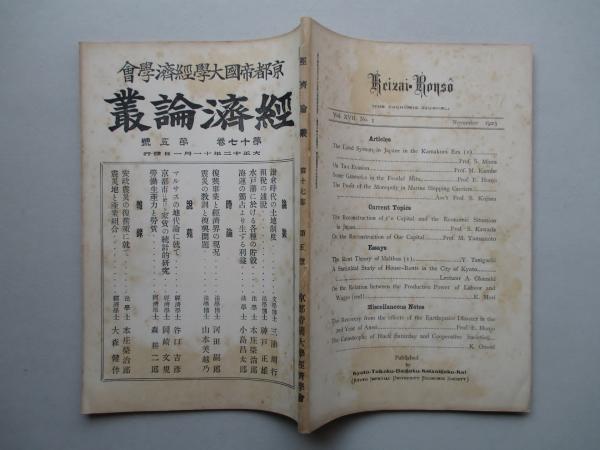 京都帝國大學經濟學會
經濟論叢
第十七卷 第五號
大正十二年十一月一日發行
論叢
鎌倉時代の土地制度 文學博士 三浦周行
租税の逋脱 法學博士 神戸正雄
水戸藩に於ける各種の貯穀 法學士 本庄榮治郎
海運の獨占より生ずる利益 法學士 小島昌太郎
時論
復興事業と經濟界の現況 法學博士 河田嗣郎
震災の教訓と復興問題 法學士 山本美越乃
說苑
マルサスの地代論に就て 經濟學士 谷口吉彦
京都市に於ける家賃の統計的研究 經濟學士 岡崎文規
勞働生產力と勞賃 經濟學士 森耕二郎
雜錄
安政震災の復舊策に就て 法學士 本庄榮治郎
震災地と產業組合 經濟學士 大森
經濟論叢 第十七卷 第五號 京都帝國大學經濟學會
Keizai-Ronsō
(THE ECONOMIC JOURNAL)
Vol. XVII, No. 5 November 1923
Articles
The Land System in Japan in the Kamakura Era (1) Prof. S. Miura
On Tax Evasion Prof. M. Kambe
Some Granaries in the Feudal Mito Prof. E. Honjo
The Profit of the Monopoly in Marine Shipping Carriers
Ass't Prof. S. Kojima
Current Topics
The Reconstruction of and the Economic Situation
in Japan Prof. S. Kawada
On the Reconstruction of Our Capital Prof. M. Yamamoto
Essays
The Rent Theory of Malthus (1) Y. Taniguchi
A Statistical Study of House-Rents in the City of Kyoto
Lecturer A. Okazaki
On the Relation between the Productive Power of Labour and
Wage K. Mori
Miscellaneous Notes
The Recovery from the effects of the Earthquake Disaster in the
2nd Year of Ansei Prof. E. Honjo
The Catastrophe of Black Saturday and Cooperative Societies
K. Omori
Published
by
Kyoto-Teikoku-Daigaku-Keizaigaku-Kai
(KYOTO IMPERIAL UNIVERSITY ECONOMIC SOCIETY)